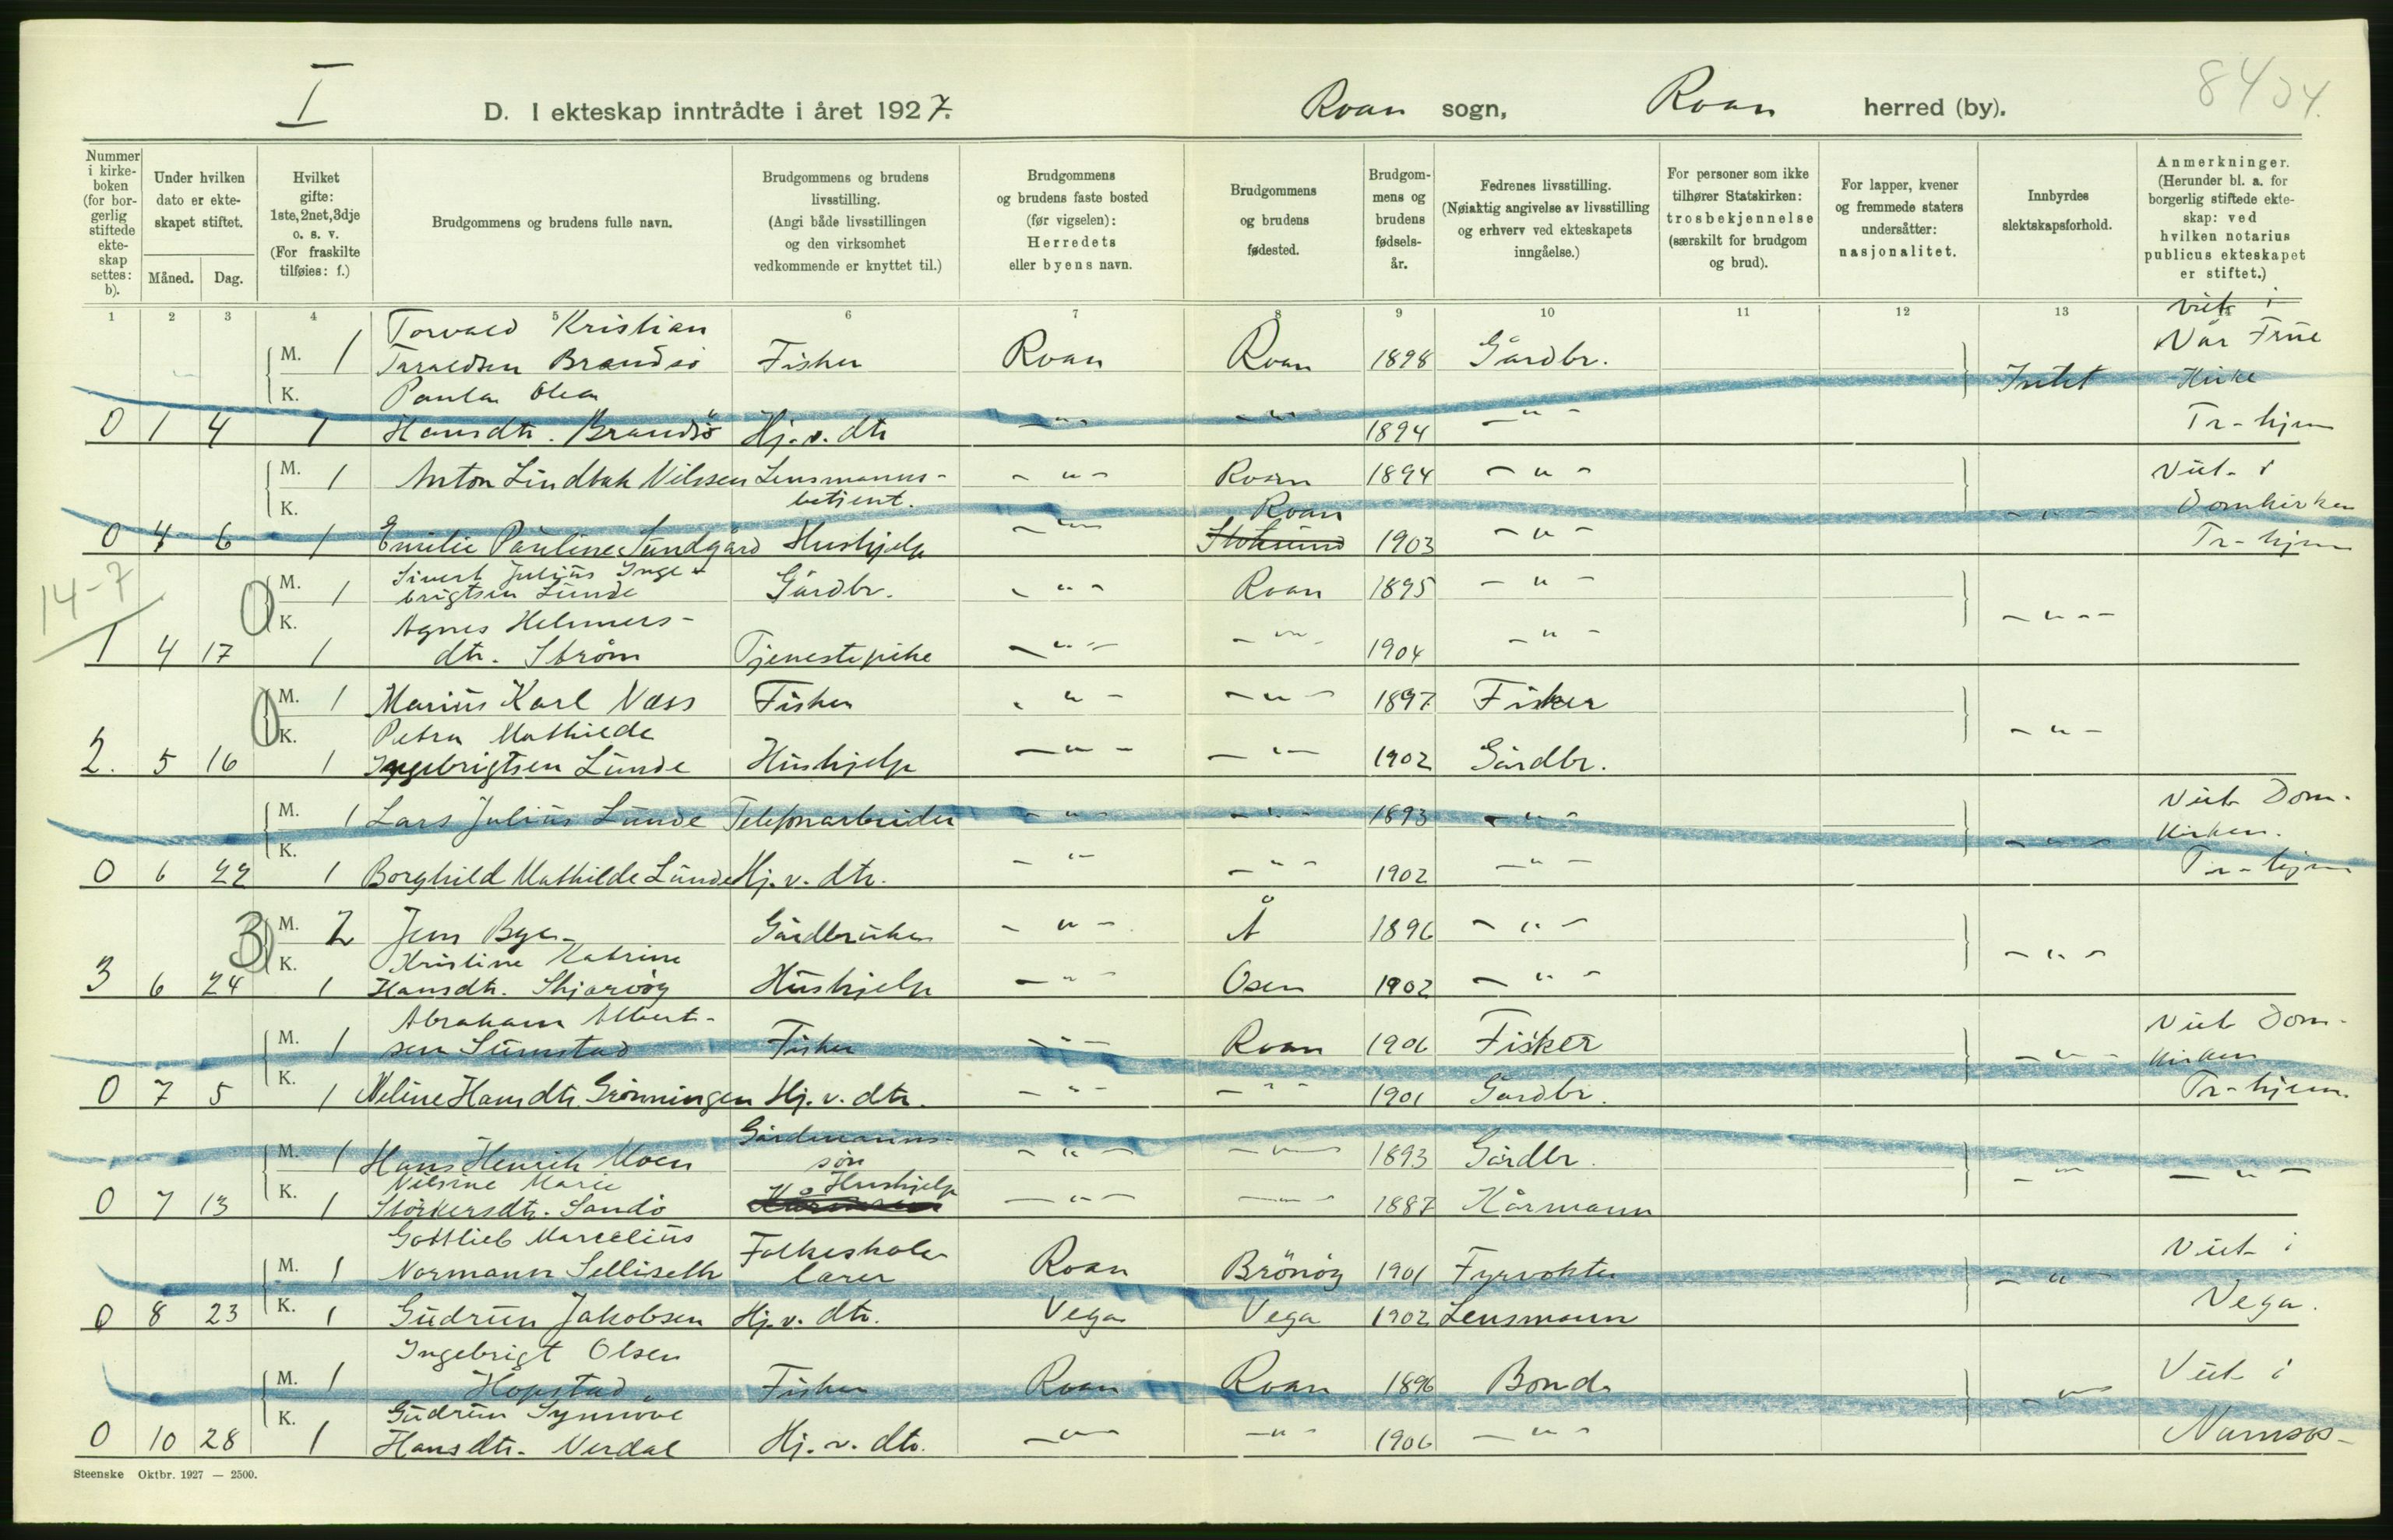 I
D. I ekteskap inntrådte i året 1927. Roan sogn, Roan herred (by).
Nummer i kirke-boken (for bor-gerlig stiftede ekte-skap settes: b).
Under hvilken dato er ekte-skapet stiftet.
Måned. Dag.
Hvilket gifte: 1ste, 2net, 3dje o. s. v. (For fraskilte tilføies: f.)
Brudgommens og brudens fulle navn.
Brudgommens og brudens livsstilling. (Angi både livsstillingen og den virksomhet vedkommende er knyttet til.)
Brudgommens og brudens faste bosted (før vigselen): Herredets eller byens navn.
Brudgommens og brudens fødested.
Brudgom-mens og brudens fødsels-år.
Fedrenes livsstilling. (Nøiaktig angivelse av livsstilling og erhverv ved ekteskapets inngåelse.)
For personer som ikke tilhører Statskirken: trosbekjennelse (særskilt for brudgom og brud).
For lapper, kvener og fremmede staters undersåtter: nasjonalitet.
Innbyrdes slektskapsforhold.
Anmerkninger. (Herunder bl. a. for borgerlig stiftede ekte-skap: ved hvilken notarius publicus ekteskapet er stiftet.)
1 2 3 4 5 6 7 8 9 10 11 12 13 14
Torvald Kristian
M. 1 Taraldsen Brandsö Fisker Roan Roan 1898 Gårdbr. Viet i Vår Frue
K. Paula Olea Intet Kirke
0 1 4 1 Hansdtr. Brandsö Hj. v. dtr - " - - " - 1894 - " - Tr-hjem
M. 1 Anton Lindbak Nilssen Lensmanns- - " - Roan 1894 - " - Viet i
K. betjent. Roan - " - Domkirken
0 4 6 1 Emilie Pauline Sundgård Hushjelp - " - Stoksund 1903 - " - Tr-hjem
14-7
M. 1 Sivert Julius Inge-
brigtsen Lunde Gårdbr. - " - Roan 1895 - " -
K. Agnes Helmers- - " -
1 4 17 1 dtr. Strøm Tjenestepike - " - - " - 1904 - " -
M. 1 Marius Karl Næss Fisker - " - - " - 1897 Fisker
K. Petra Mathilde - " -
2. 5 16 1 Ingebrigtsen Lunde Hushjelp - " - - " - 1902 Gårdbr.
M. 1 Lars Julius Lunde Telefonarbeider - " - - " - 1893 - " - Viet Dom-
K. - " - kirken.
0 6 22 1 Borghild Mathilde Lunde Hj. v. dtr. - " - - " - 1902 - " - Tr-hjem
3
M. 2 Jens Bye Gårdbruker - " - Å 1896 - " -
K. Kristine Katrine - " -
3 6 24 1 Hansdtr. Skjervöy Hushjelp - " - Osen 1902 - " -
Abraham Albert-
M. 1 sen Sumstad Fisker - " - Roan 1906 Fisker Viet Dom-
K. - " - kirken
0 7 5 1 Neline Hansdtr. Grönningen Hj. v. dtr. - " - - " - 1901 Gårdbr. Tr-hjem.
Gårdmanns-
M. 1 Hans Henrik Moen sön - " - - " - 1893 Gårdbr. - " - - " -
K. Nilsine Marie Hushjelp
0 7 13 1 Störkersdtr. Sandö - " - - " - 1887 Kårmann
Gottlieb Marcelius Folkeskole-
M. 1 Normann Selliseth lærer Roan Brönöy 1901 Fyrvokter - " - Viet i
0 8 23 K. 1 Gudrun Jakobsen Hj. v. dtr. Vega Vega 1902 Lensmann Vega.
Ingebrigt Olsen
M. 1 Hopstad Fisker Roan Roan 1896 Bonde - " - Viet i
K. Gudrun Synnöve
0 10 28 1 Hansdtr. Nerdal Hj. v. dtr. - " - - " - 1906 - " - Namsos
Steenske Oktbr. 1927 — 2500.